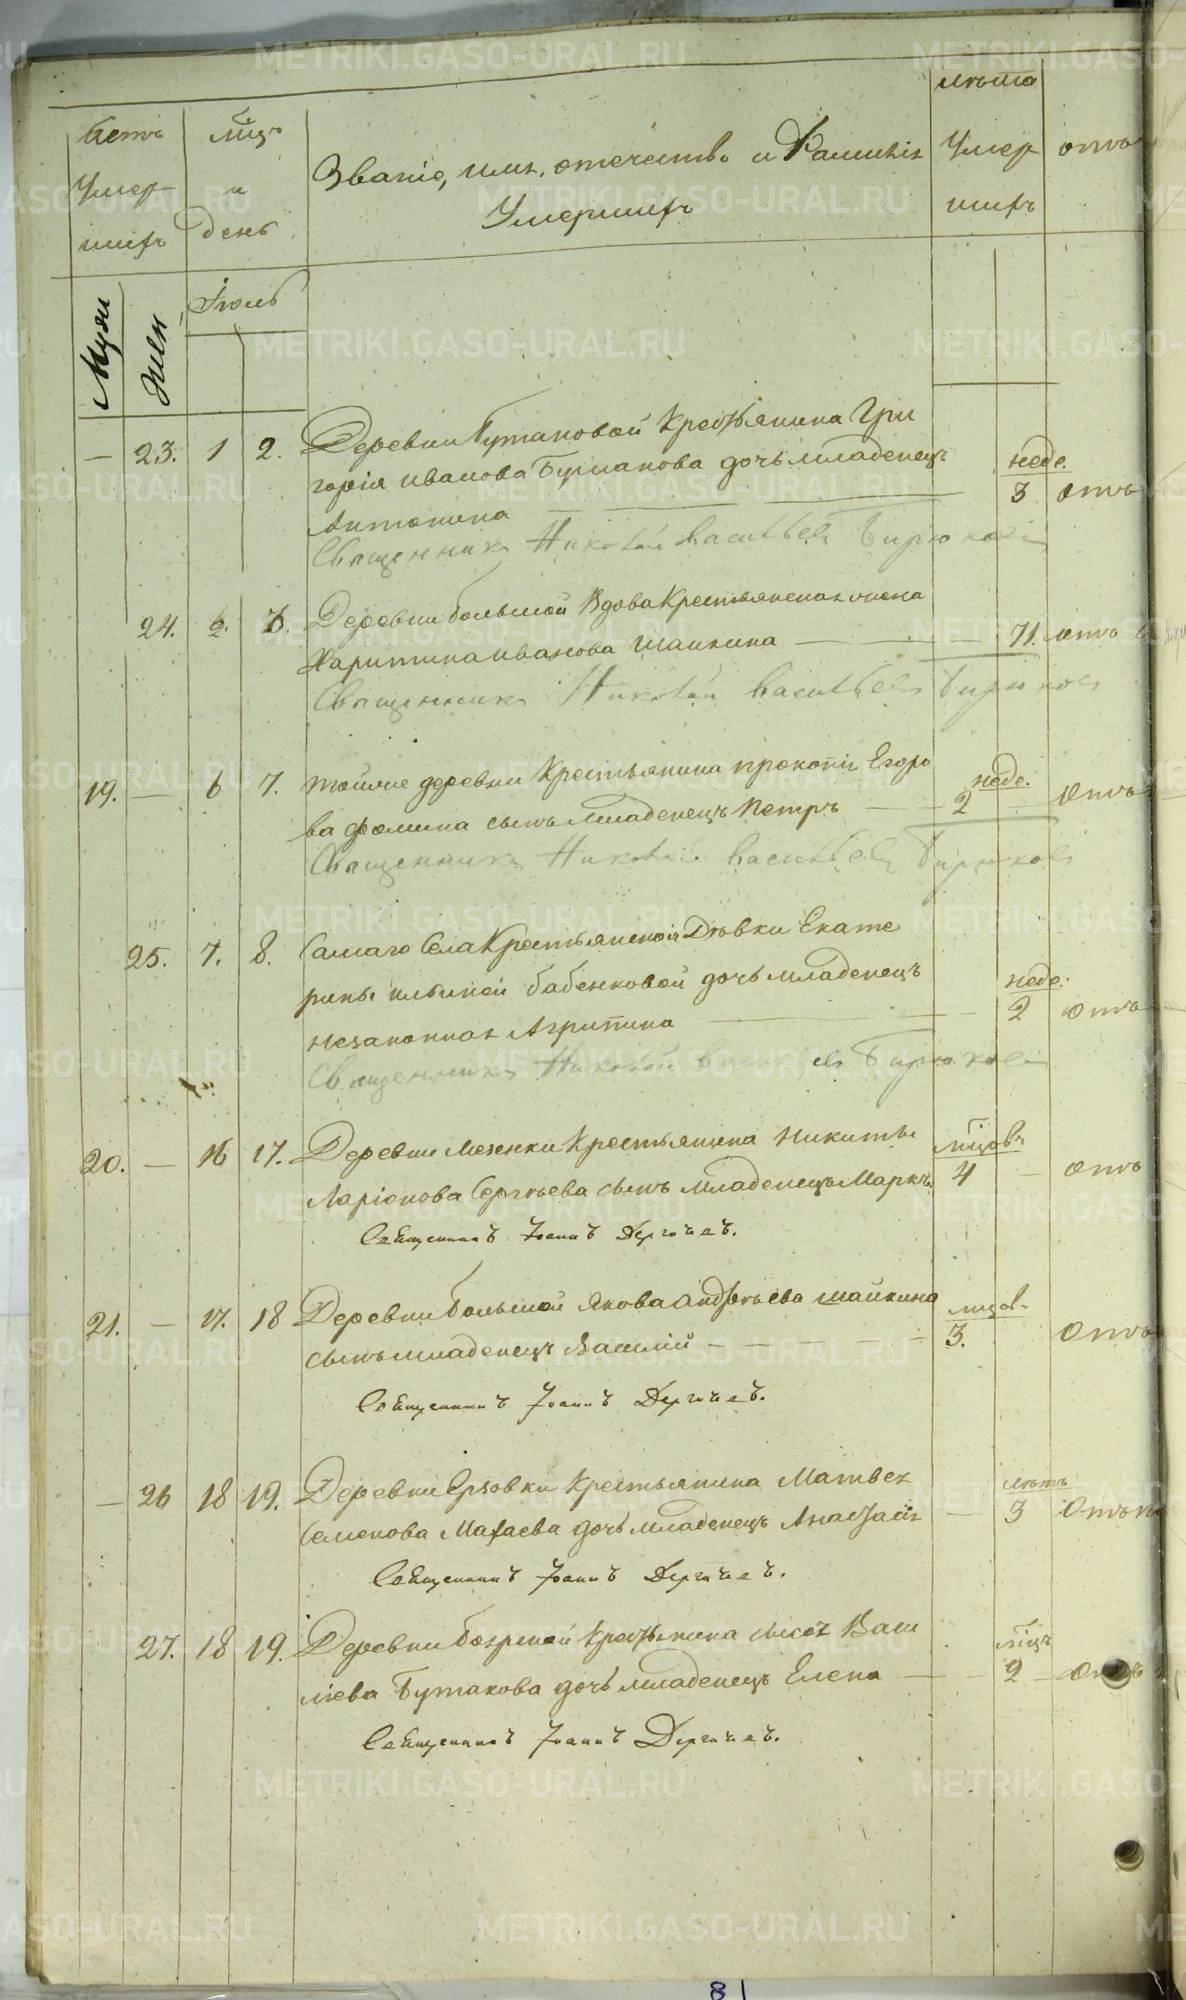 METRIKI.GASO-URAL.RU
Счетъ Умер шихъ
Мцъ и день
Званіе, имя, отечество и Фамилія Умершихъ
лѣта Умер шихъ
отъ
Мужн
Жен
Іюль
— 23. 1 2. Деревни Бутаковой Крестьянина Гри
горія Иванова Бутакова дочь младенецъ неде. 3 отъ
Антонина
Священникъ Николай Васильевъ Бирюковъ
24. 2. 3. Деревни Большой Вдова Крестьянская жена
Харитина Иванова Шайкина — 71. лѣтъ
Священникъ Николай Васильевъ Бирюковъ
19. — 6 7. Тойже деревни Крестьянина Прокопія Егоро
ва Фомина сынъ младенецъ Петръ — неде. 2 Отъ
Священникъ Николай Васильевъ Бирюковъ
25. 7. 8. Самаго Села Крестьянской Дѣвки Екате
рины Ильиной Бабенковой дочь младенецъ
незаконная Агрипина — неде. 2 отъ
Священникъ Николай Васильевъ Бирюковъ
20. — 16 17. Деревни Мезенки Крестьянина Никиты
Ларіонова Сергѣева сынъ младенецъ Маркъ. мцовъ 4 — отъ
Священникъ Іоаннъ Дергачевъ.
21. — 17. 18 Деревни Большой Якова Андрѣева Шайкина
сынъ младенецъ Василій — мцов. 3. Отъ
Священникъ Іоаннъ Дергачевъ.
— 26 18 19. Деревни Ерзовки Крестьянина Матвея
Семенова Махаева дочь младенецъ Анастасія — лѣтъ 3 Отъ
Священникъ Іоаннъ Дергачевъ.
27. 18 19. Деревни Боярской Крестьянина Васи
лісва Бутакова дочь младенецъ Елена — мцъ 2 — Отъ
Священникъ Іоаннъ Дергачевъ.
81